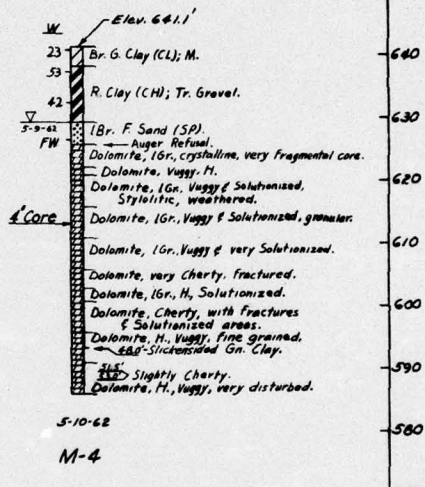 Elev. 641.1'
W
640
23
Br. G. Clay (CL); M.
53
R. Clay (CH); Tr. Gravel.
42
630
5-9-62
lBr. F. Sand (SP).
FW
Auger Refusal.
Dolomite, lGr., crystalline, very fragmental core.
Dolomite, Vuggy, H.
620
Dolomite, lGr. Vuggy & Solutionized,
Stylolitic, weathered.
4" Core
Dolomite, lGr., Vuggy & Solutionized, granular.
610
Dolomite, lGr., Vuggy & very Solutionized.
Dolomite, very Cherty, fractured.
Dolomite, lGr., H., Solutionized.
600
Dolomite, Cherty, with Fractures
& Solutionized areas.
Dolomite, H., Vuggy, fine grained.
48.0'-Slickensided Gn. Clay.
590
51.5'
Slightly Cherty.
Dolomite, H., Vuggy, very disturbed.
580
5-10-62
M-4